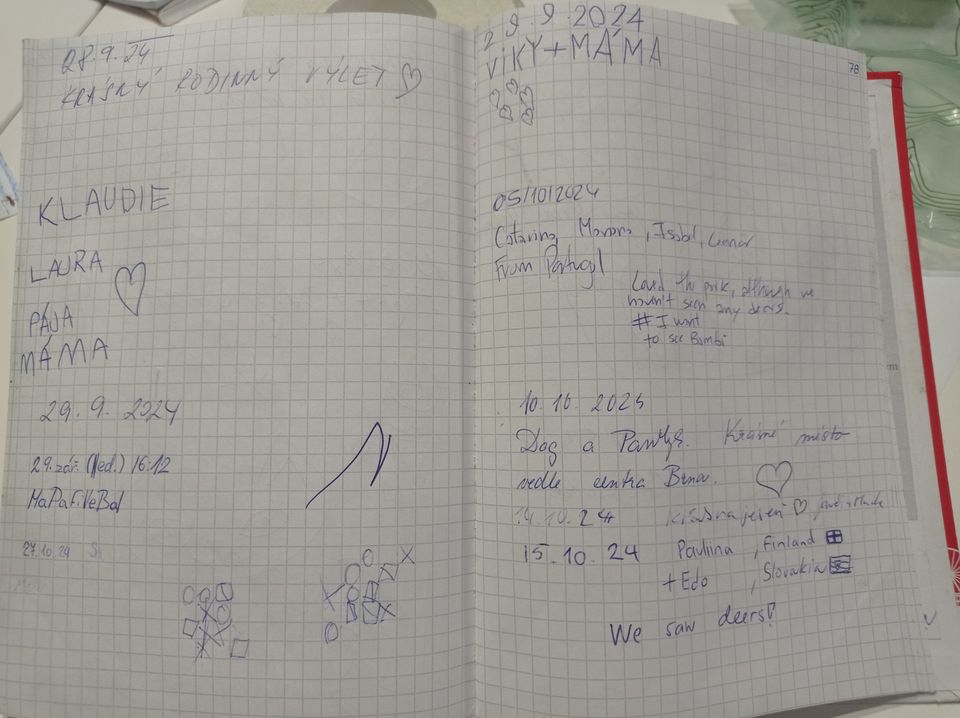 28.9.24
KRÁSNÝ RODINNÝ VÝLET
KLAUDIE
LAURA
PÁJA
MÁMA
29. 9. 2024
29. zář. (Ned.) 16:12
MaPaFiVeBal
27.10.24
29.9.2024
VIKY+MÁMA
78
05/10/2024
Catarina, Mariana, Isabel, Leonor
From Portugal
Loved the park, although we
haven't seen any deers.
# I want
to see Bambi
10.10.2024
a Krásné místo
vedle centra Brna.
14.10.24
15.10.24 Pauliina, Finland
+Edo, Slovakia
We saw deers!